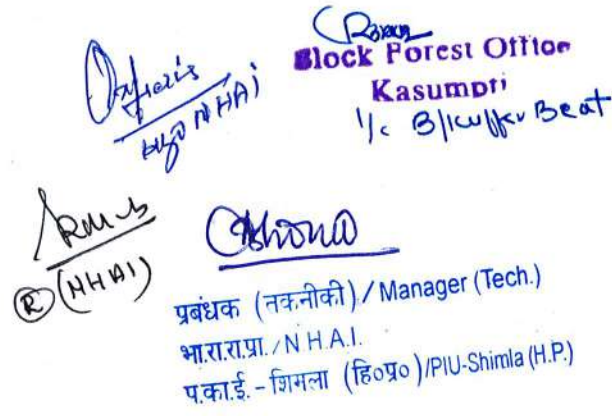 NHAI
Block Forest Office
Kasumpti
I/c B/Kuffer Beat
(NHAI)
प्रबंधक (तकनीकी) / Manager (Tech.)
भा.रा.रा.प्रा. / N H.A.I.
प.का.ई. - शिमला (हि०प्र०)/PIU-Shimla (H.P.)